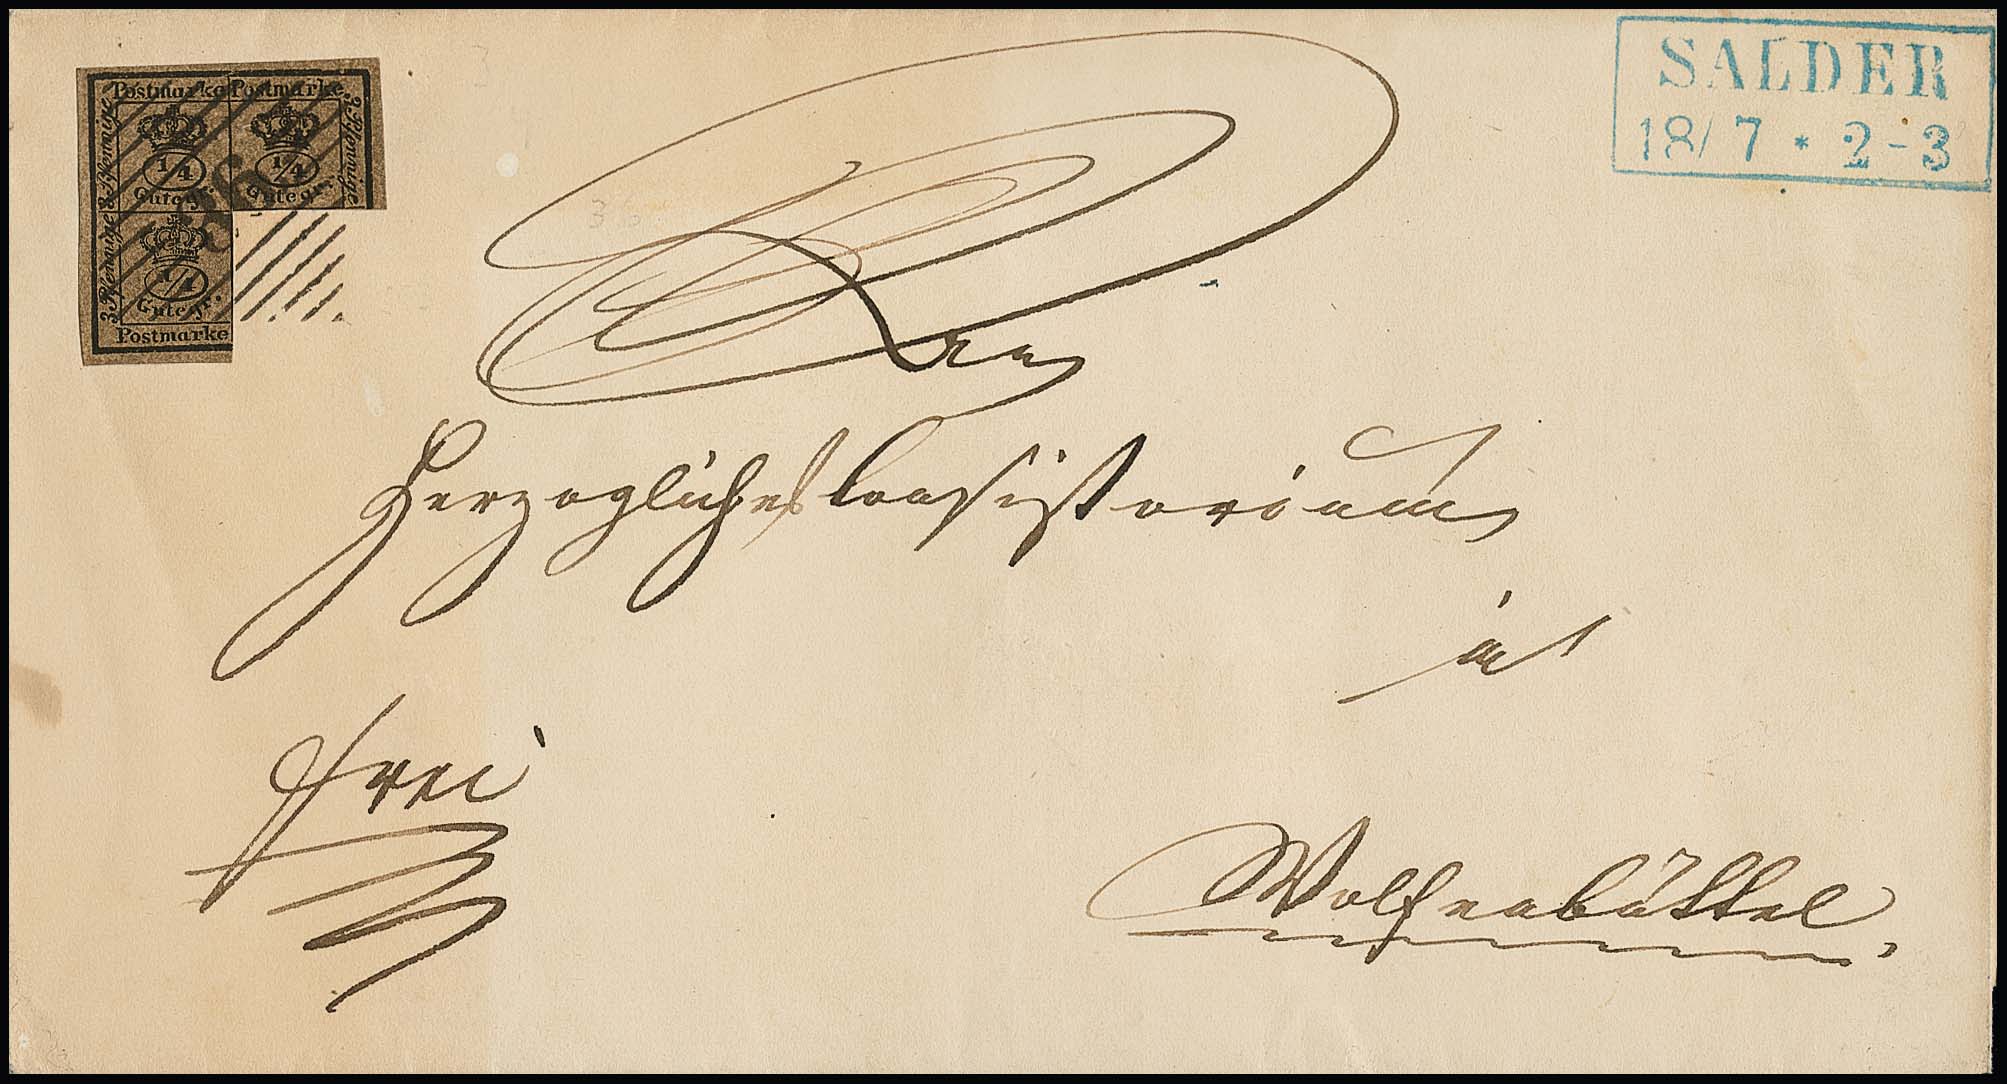 Postmarke Postmarke.
3 Pfennige
3 Pfennige
1/4 1/4
Gutegr. Gutegr.
3 Pfennige
1/4
Gutegr.
Postmarke
36
SALDER
18/7 * 2-3
Herzogliches Consistorium
in
frei
Wolfenbüttel.